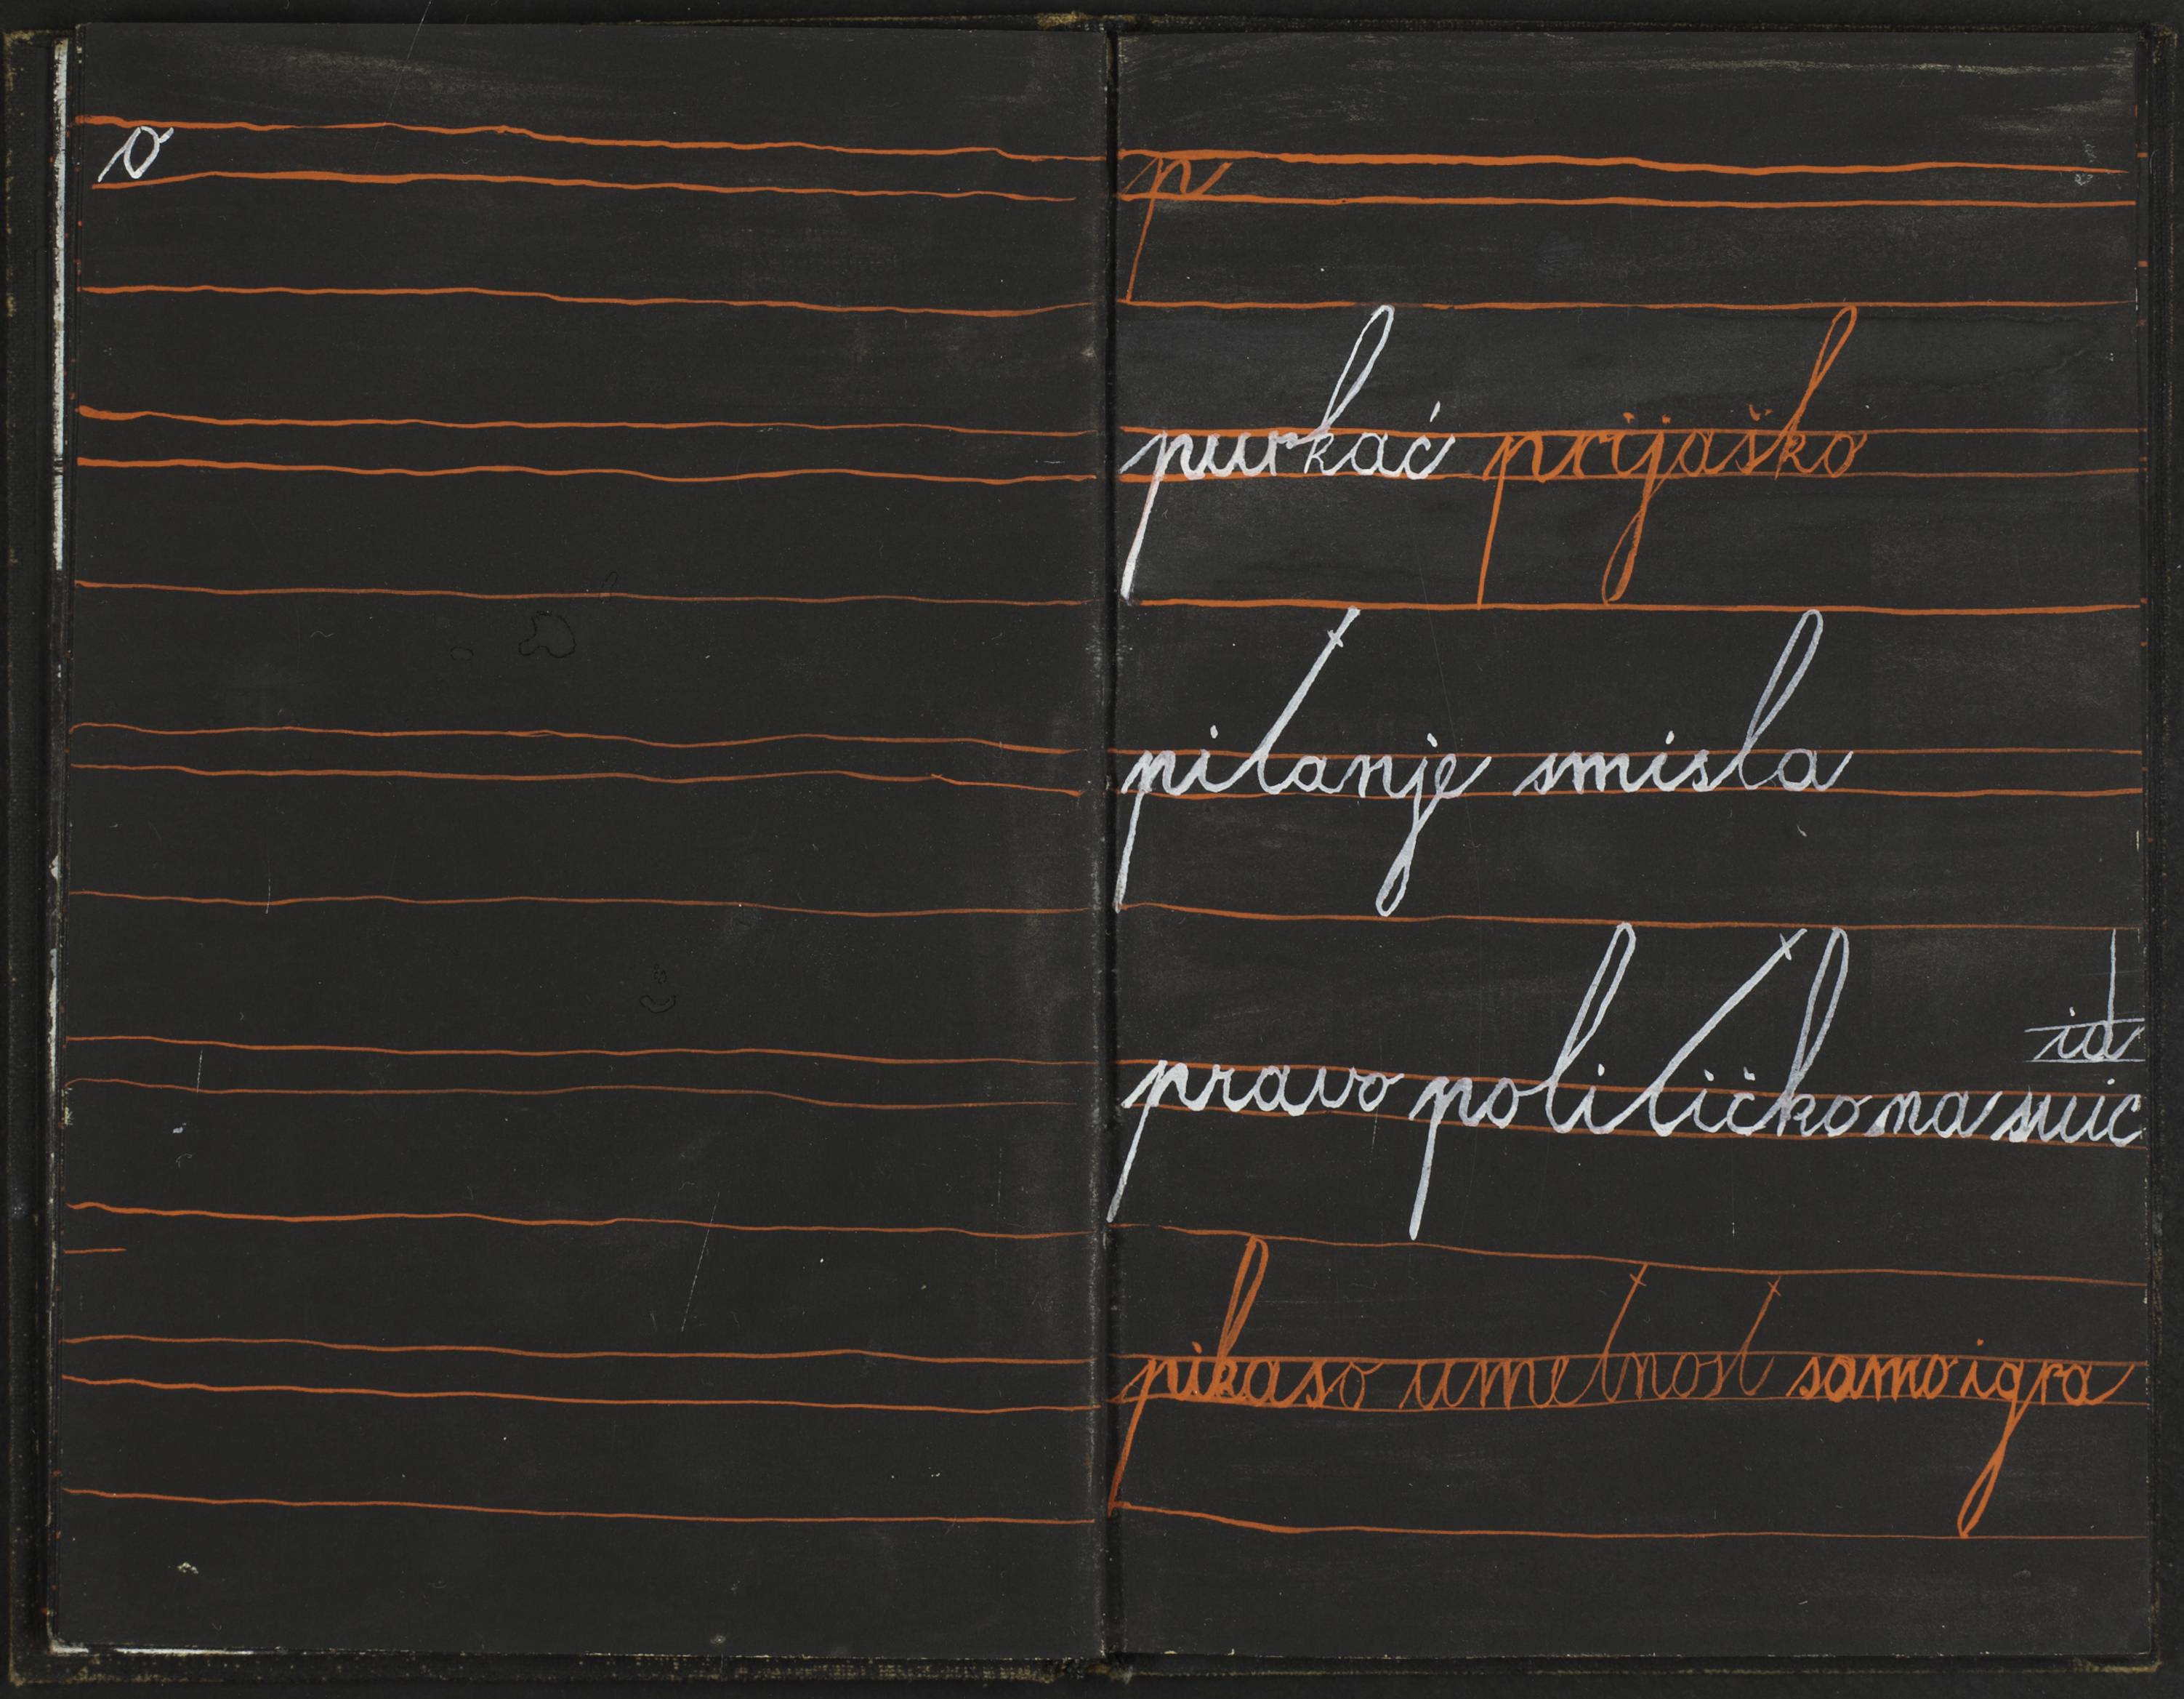 o
p
purkać prijaško
pitanje smisla
pravo političko na suic
id
pikaso umetnost samo igra